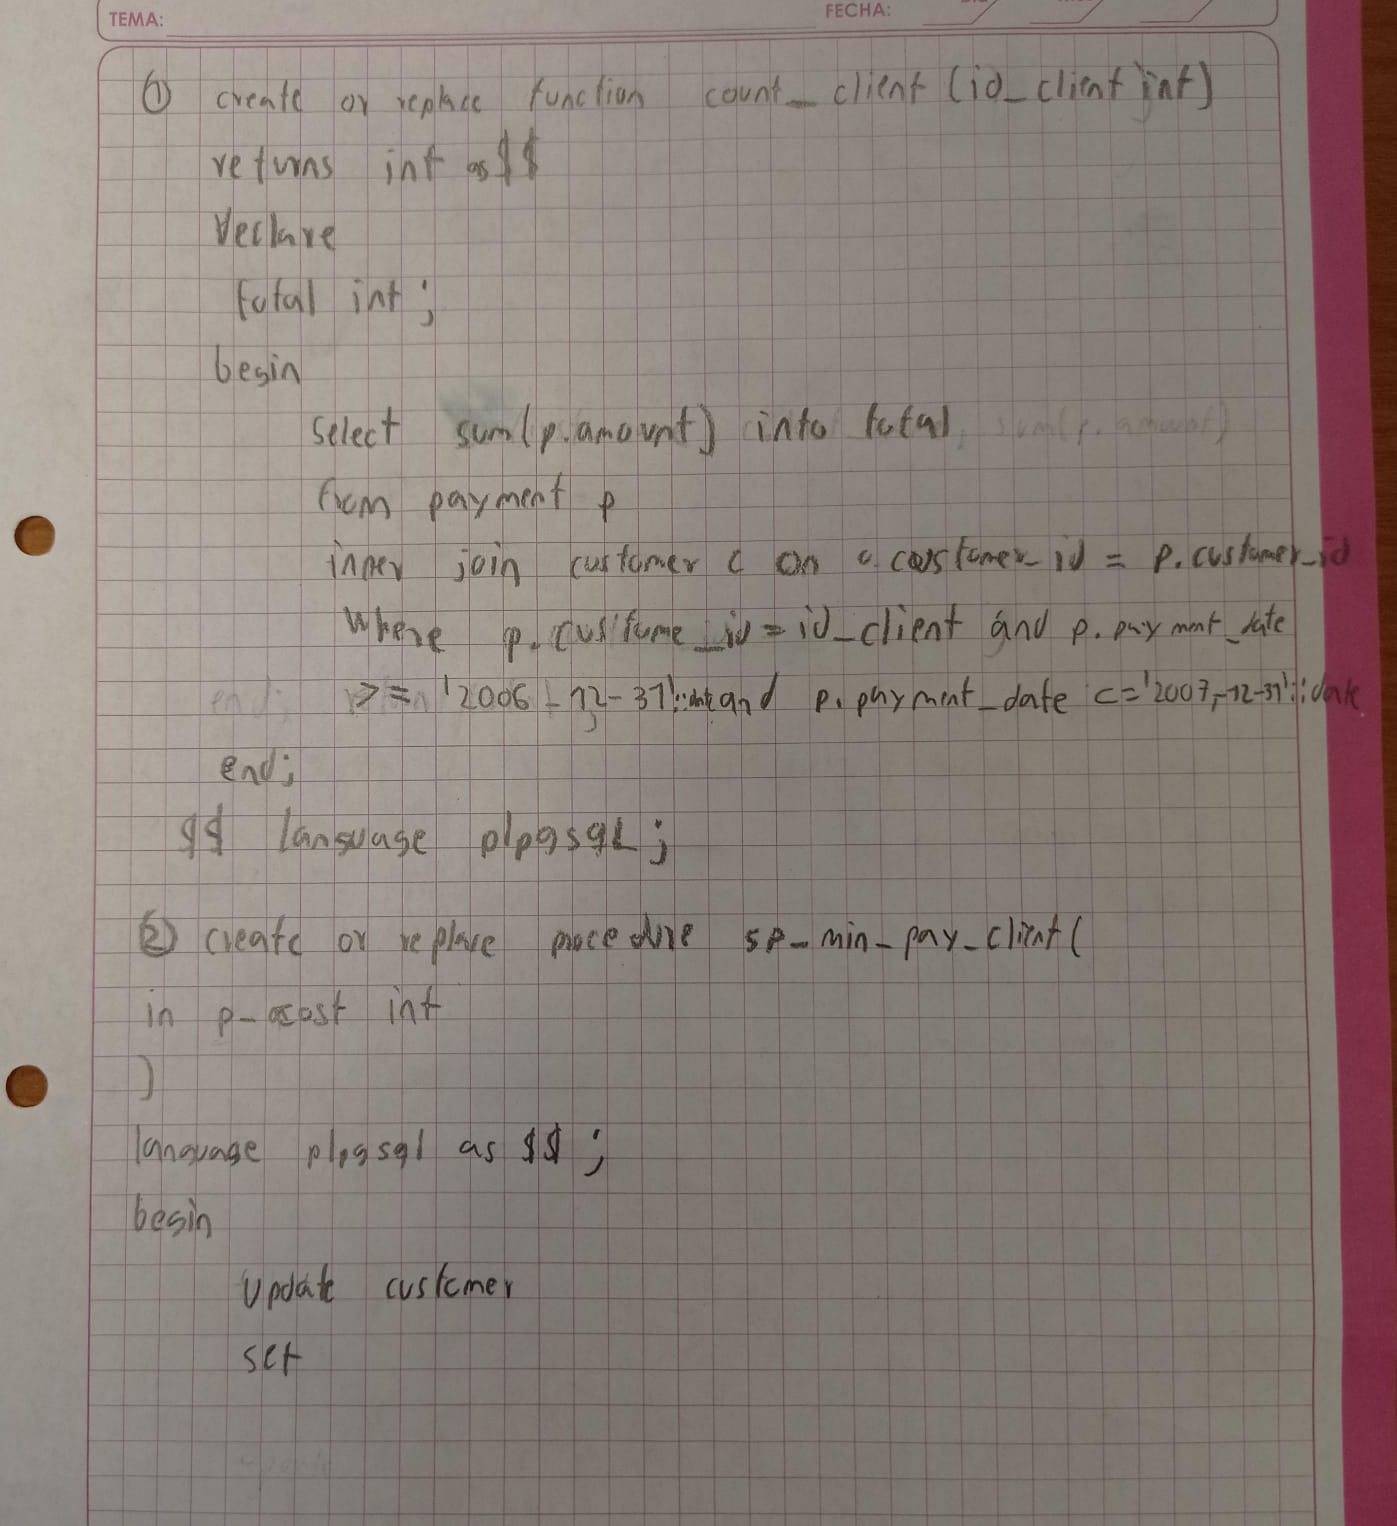 TEMA:
FECHA:
① create or replace function count_client (id_client int)
returns int as $$
Declare
total int;
begin
select sum(p.amount) into total sum(p.amount)
from payment p
inner join customer c on c.customer_id = p.customer_id
where p.custome_id = id_client and p.payment_date
>= '2006-12-31'::date and p.payment_date <= '2007-12-31'::date
end;
end;
$$ language plpgsql;
② create or replace procedure sp_min_pay_client(
in p_cost int
)
language plpgsql as $$;
begin
update customer
set